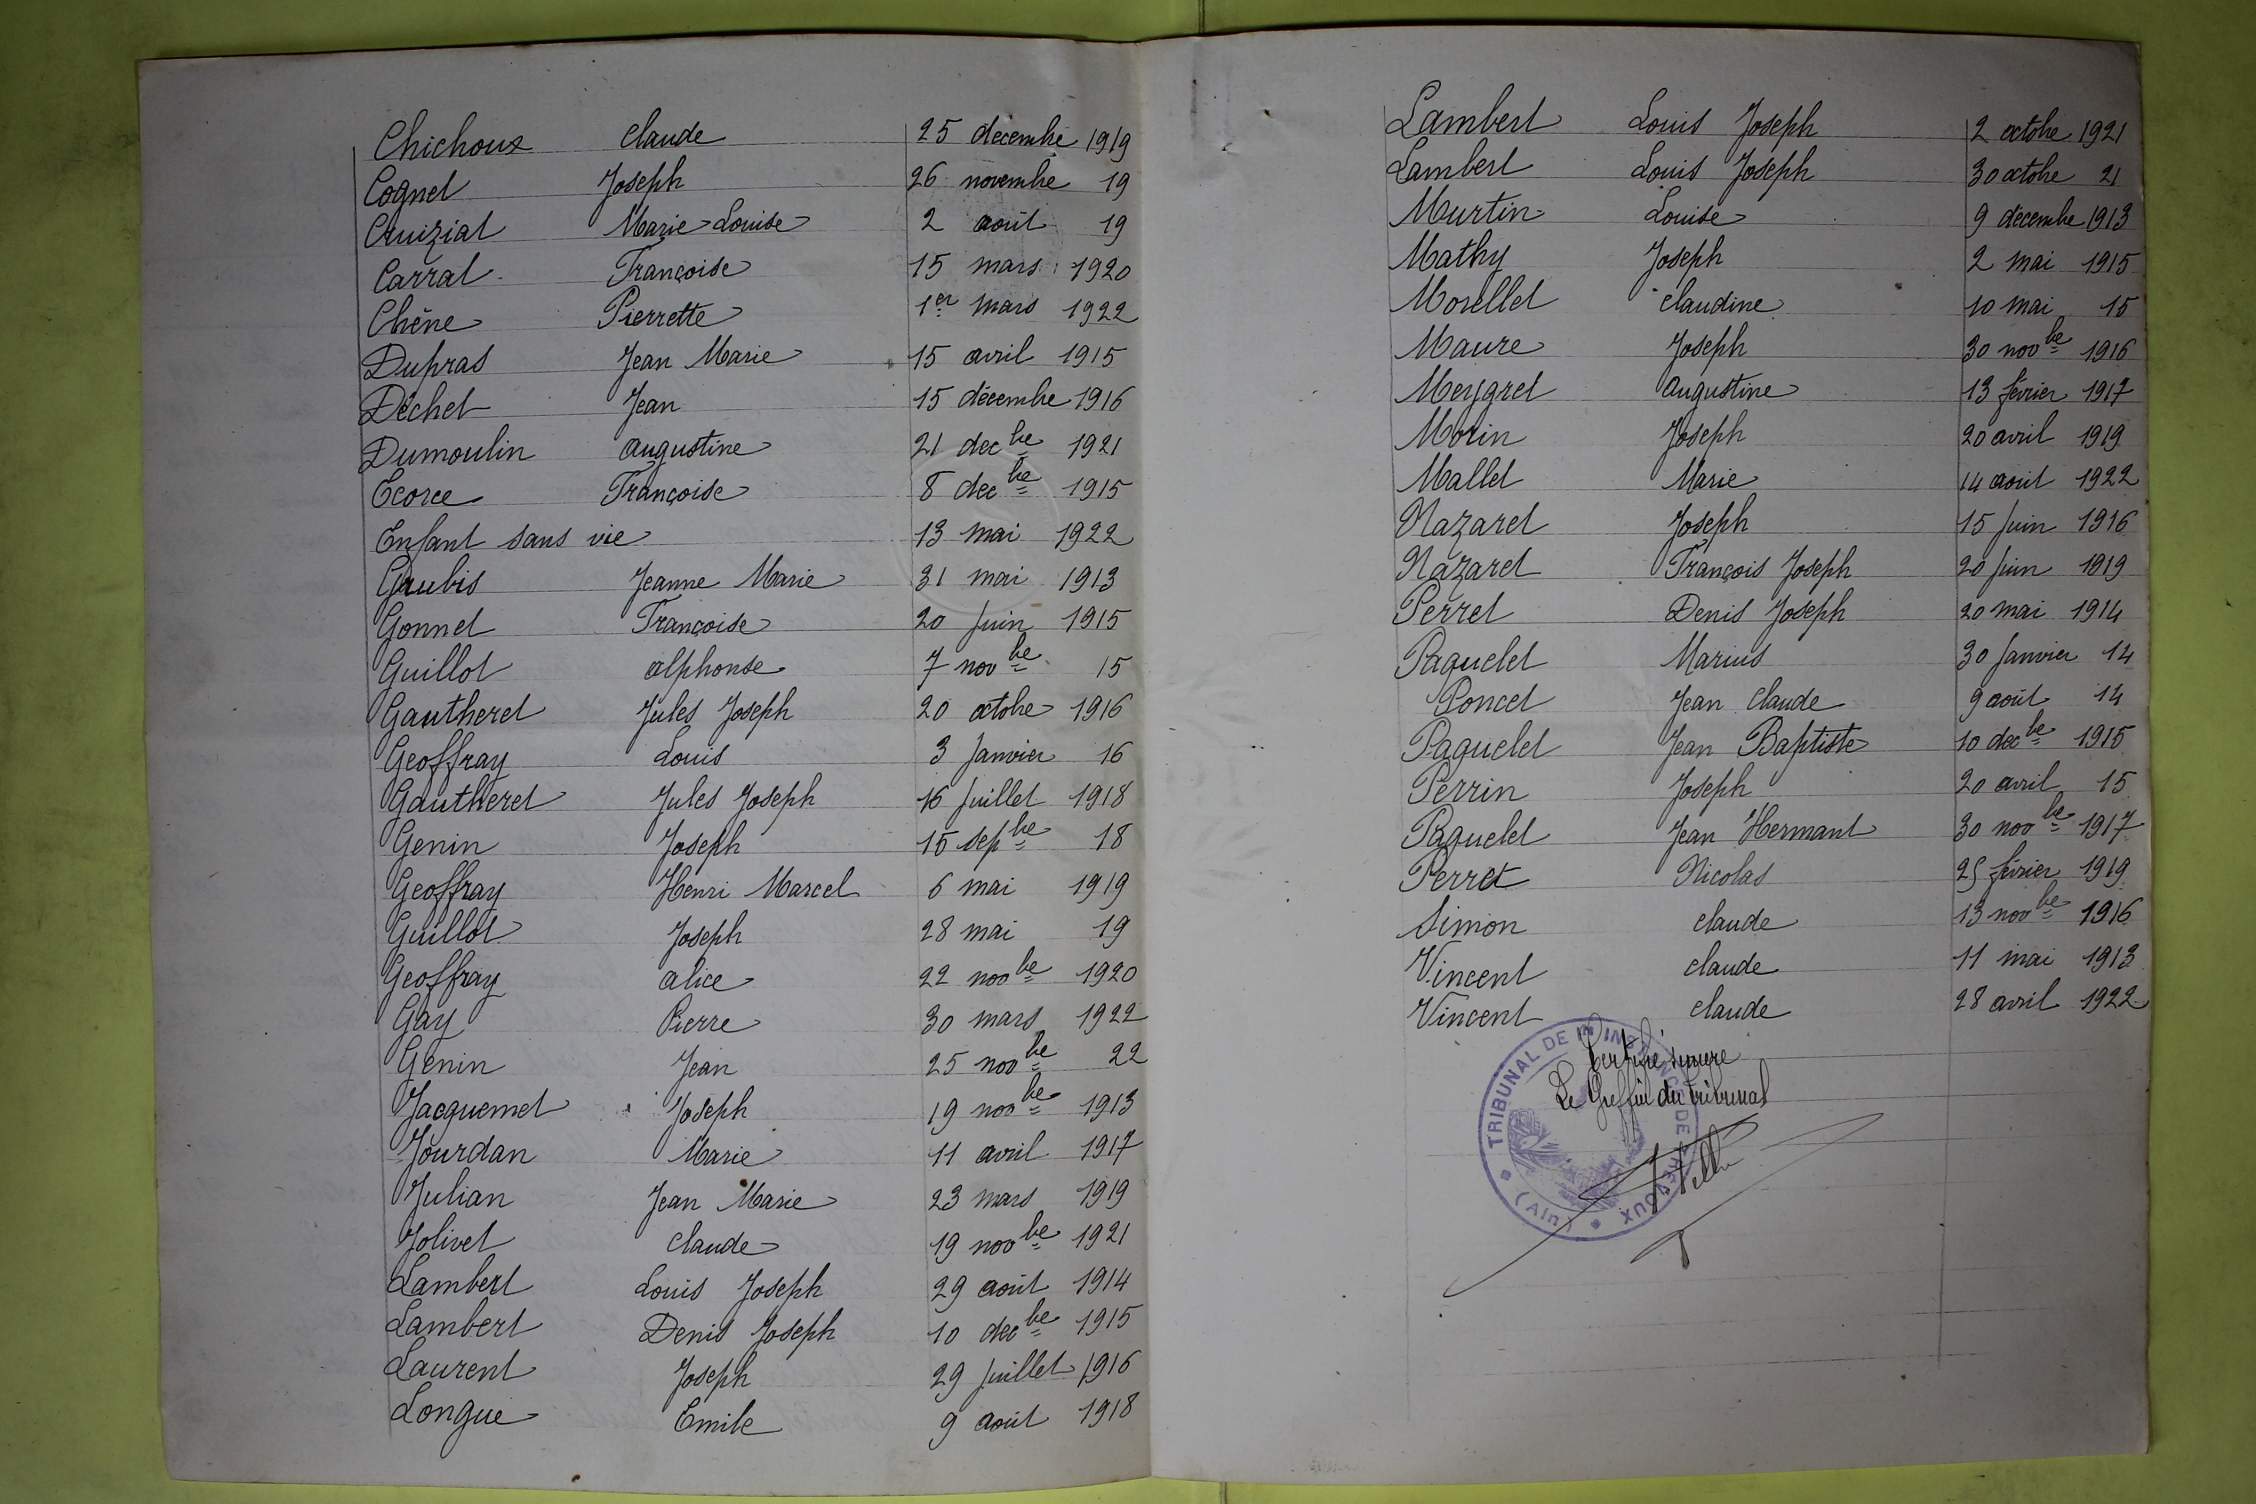 Chichoux Claude 25 décembre 1919
Cognet Joseph 26 novembre 19
Cruizial Marie Louise 2 août 19
Carrat Françoise 15 mars 1920
Chêne Pierrette 1er mars 1922
Dupras Jean Marie 15 avril 1915
Déchet Jean 15 décembre 1916
Dumoulin Augustine 21 decbe 1921
Ecorce Françoise 8 decbe 1915
Enfant sans vie 13 mai 1922
Gaubis Jeanne Marie 31 mai 1913
Gonnet Françoise 20 Juin 1915
Guillot alphonse 7 novbe 15
Gautheret Jules Joseph 20 octobre 1916
Geoffray Louis 3 Janvier 16
Gautheret Jules Joseph 16 Juillet 1918
Genin Joseph 15 sepbe 18
Geoffray Henri Marcel 6 mai 1919
Guillot Joseph 28 mai 19
Geoffray alice 22 novbe 1920
Gay Pierre 30 mars 1922
Genin Jean 25 novbe 22
Jacquemet Joseph 19 novbe 1913
Jourdan Marie 11 avril 1917
Julian Jean Marie 23 mars 1919
Jolivet Claude 19 novbe 1921
Lambert Louis Joseph 29 août 1914
Lambert Denis Joseph 10 decbe 1915
Laurent Joseph 29 Juillet 1916
Longue Emile 9 août 1918
Lambert Louis Joseph 2 octobre 1921
Lambert Louis Joseph 30 octobre 21
Murtin Louise 9 décembre 1913
Mathy Joseph 2 mai 1915
Morellet Claudine 10 mai 15
Maure Joseph 30 novbe 1916
Meygret Augustine 13 février 1917
Morin Joseph 20 avril 1919
Mallet Marie 14 août 1922
Nazaret Joseph 15 Juin 1916
Nazaret François Joseph 20 Juin 1919
Perret Denis Joseph 20 mai 1914
Paquelet Marius 30 Janvier 14
Poncet Jean Claude 9 août 14
Paquelet Jean Baptiste 10 decbe 1915
Perrin Joseph 20 avril 15
Paquelet Jean Hermant 30 novbe 1917
Perret Nicolas 25 février 1919
Simon Claude 13 novbe 1916
Vincent Claude 11 mai 1913
Vincent Claude 28 avril 1922
Certifié sincère
Le Greffier du tribunal
TRIBUNAL DE 1re INSTANCE DE TREVOUX
(AIN)